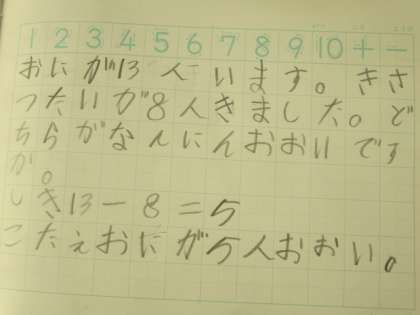 1 2 3 4 5 6 7 8 9 10 + −
おにが13人います。きさ
つたいが8人きました。ど
ちらがなんにんおおいです
が。
しき13−8=5
こたえおにが5人おおい。